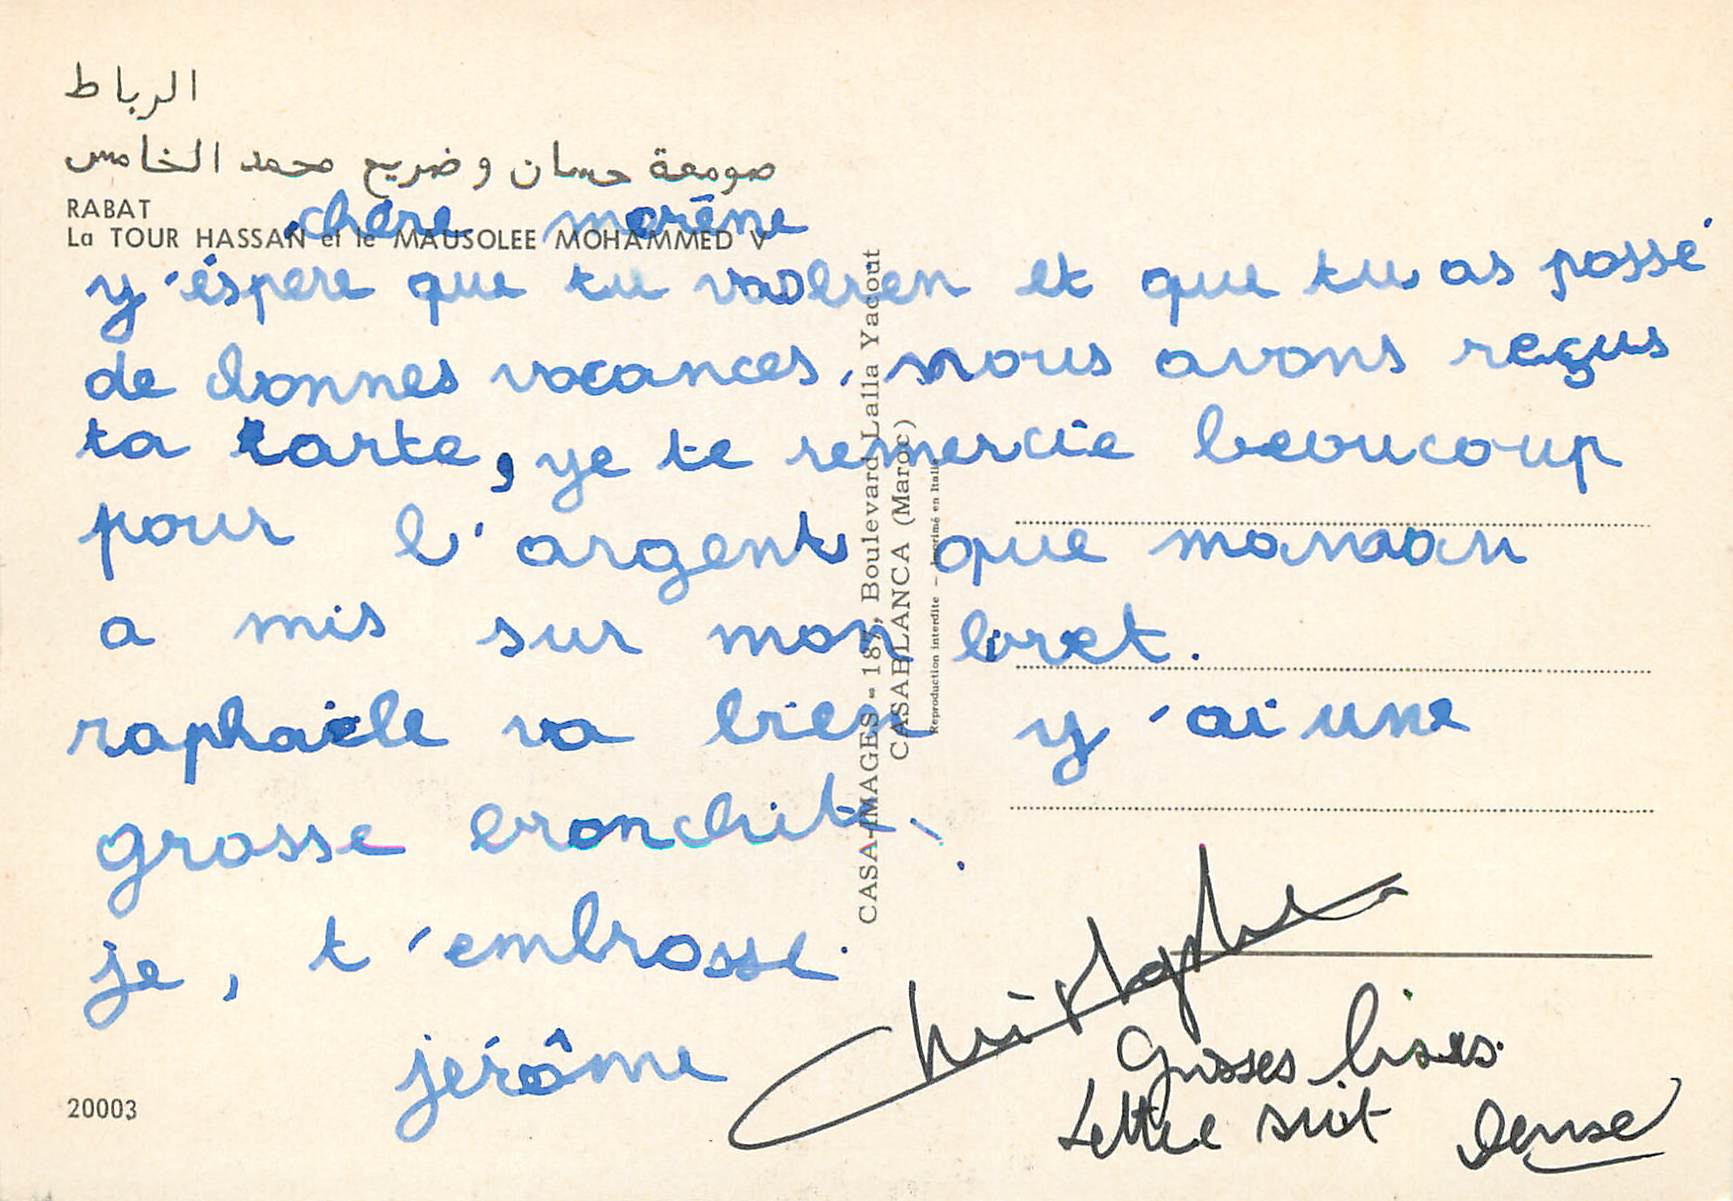 الرباط
صومعة حسان وضريح محمد الخامس
RABAT
La TOUR HASSAN et le MAUSOLEE MOHAMMED V
chére marēne
y'éspere que tu vas bien et que tu as passé
de bonnes vacances. nous avons reçus
ta carte, ye te remercie beaucoup
pour l'argent que maman
a mis sur mon livret.
raphaële va bien y'ai une
grosse bronchite.
je, t'embrasse.
jérôme
Christophe
Grosses bises.
Lettre suit Denise
CASA-IMAGES - 187, Boulevard Lalla Yacout
CASABLANCA (Maroc)
Reproduction interdite - Imprimé en Italie
20003